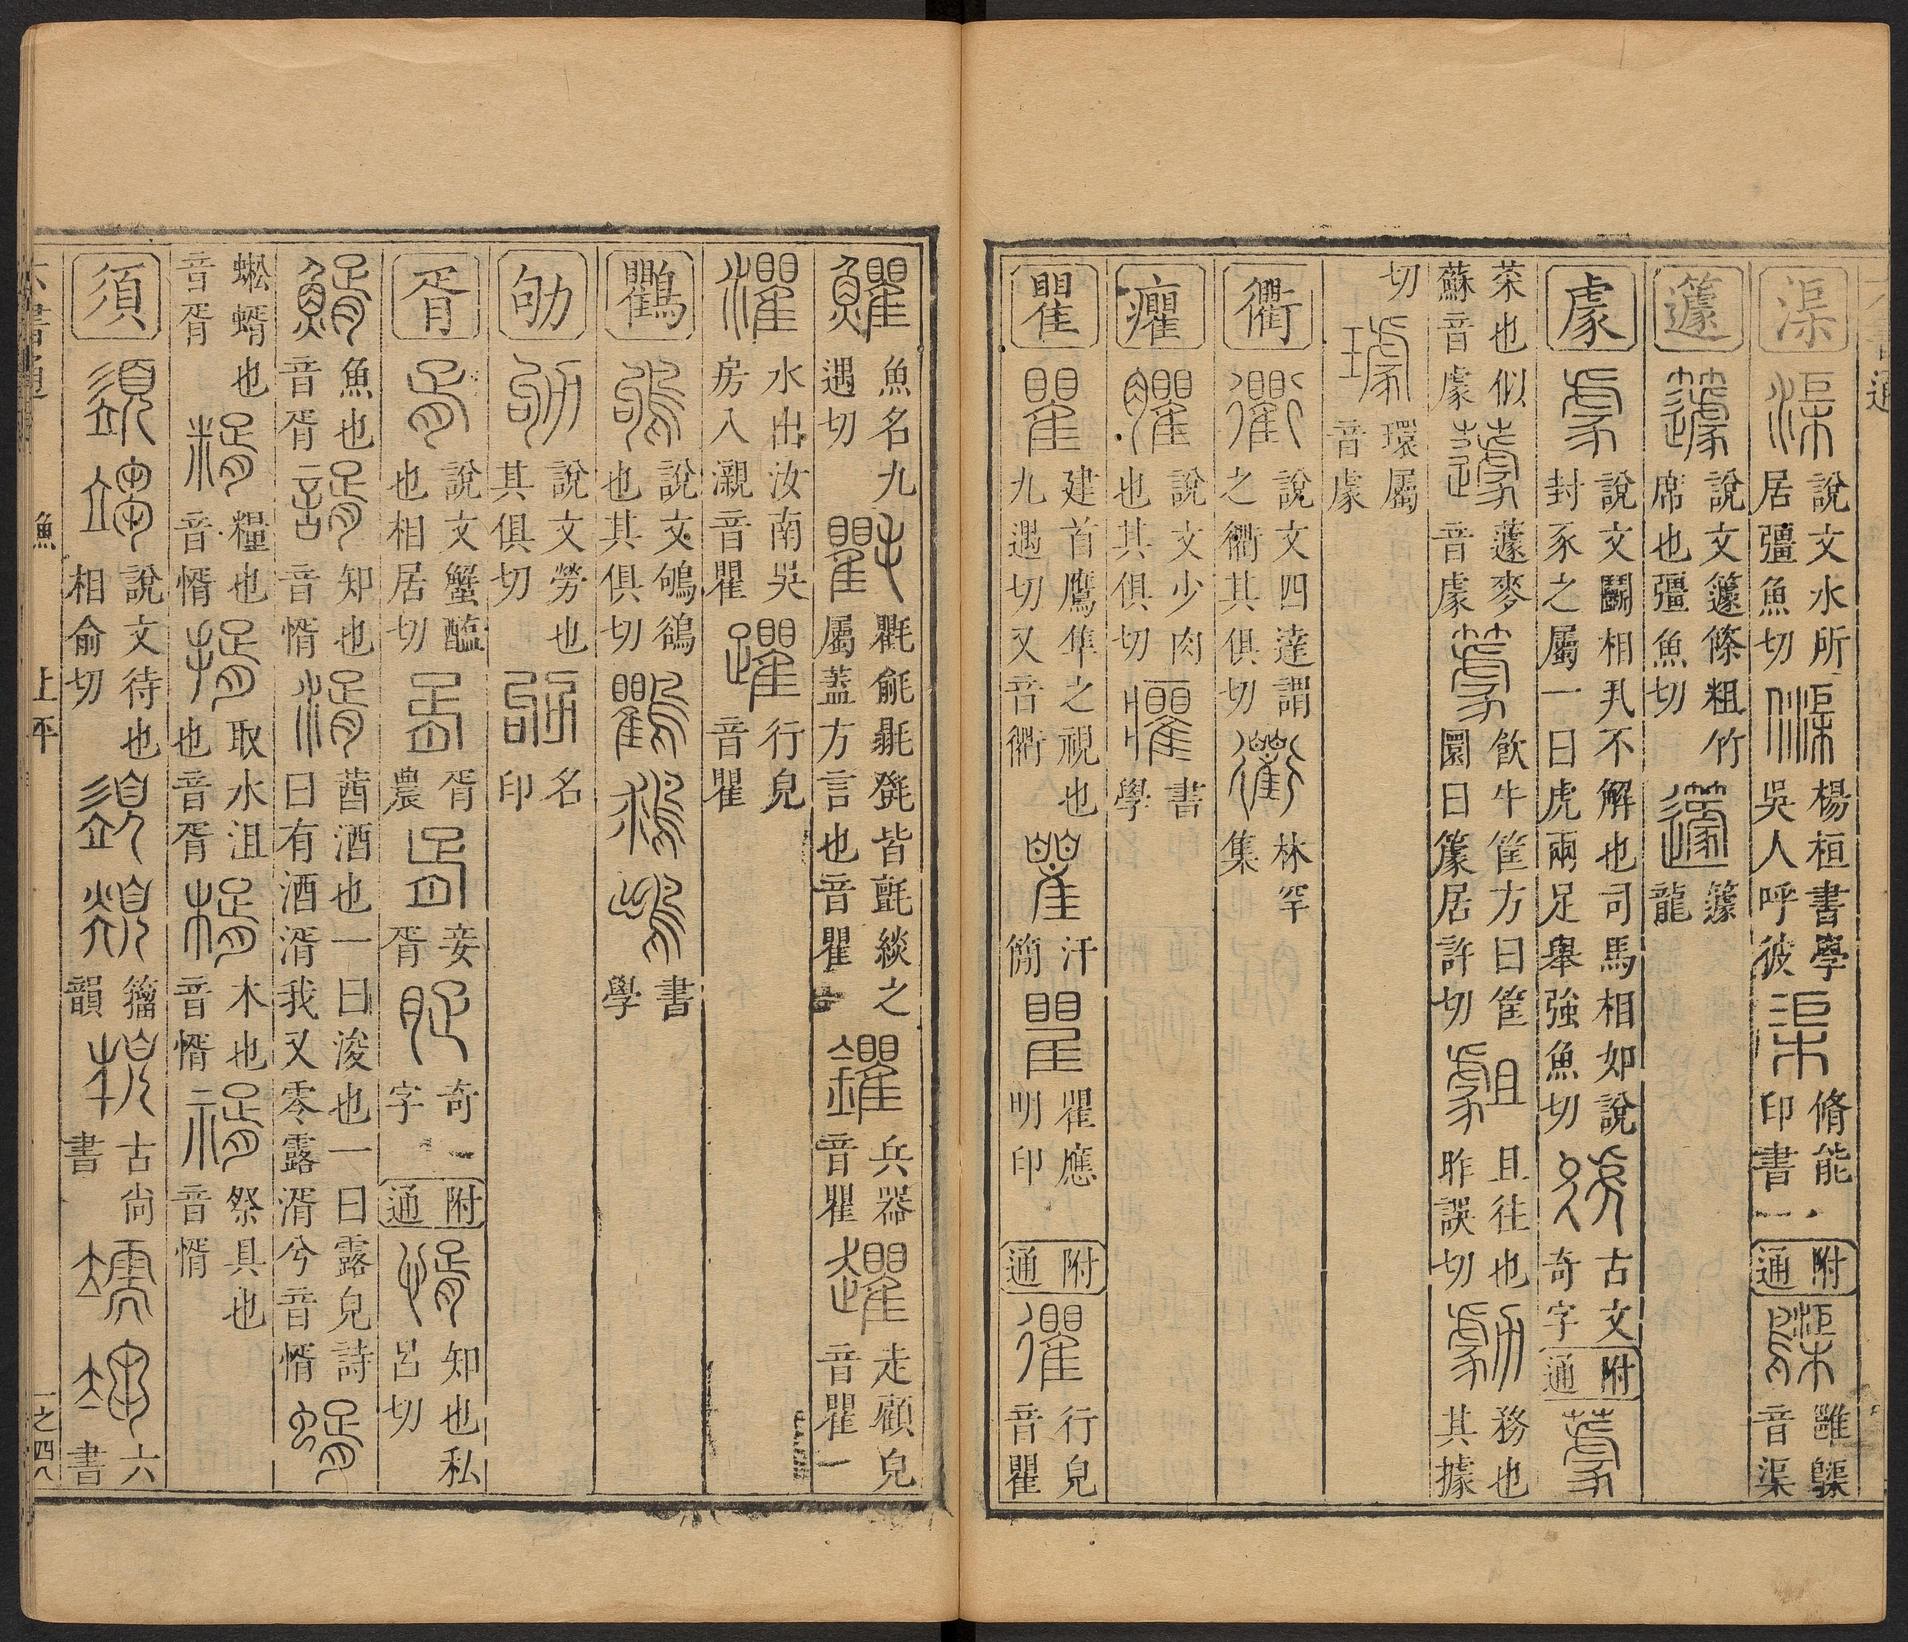 渠 渠 說文水所居彊魚切 渠 楊桓書學吳人呼彼 渠 脩能印書 附通 雝 音渠
籧 籧 說文籧篨粗竹席也彊魚切 籧 籧龍
豦 豦 說文鬬相丮不解也司馬相如說封豕之屬一曰虎兩足舉強魚切 古文奇字 附通
菜也似蘇音豦 蘧 蘧麥音豦 飲牛筐方曰筐圜曰篆居許切 且往也昨誤切 勮 務也其據
切 璩 環屬音豦
衢 衢 說文四達謂之衢其俱切 衢 林罕集
癯 臞 說文少肉也其俱切 懼 書學
瞿 瞿 建首鷹隼之視也九遇切又音衢 瞿 汗簡 瞿 瞿應明印 附通 忂 行皃音瞿
䱷 魚名九遇切 氍 氍㲣毾㲪皆氈緂之屬蓋方言也音瞿 鑺 兵器音瞿 趯 走顧皃音瞿
灈 水出汝南吳房入瀙音瞿 躣 行皃音瞿
鸜 鴝 說文鴝鵒也其俱切 鸜 書學
劬 劬 說文勞也其俱切 劬 名印
胥 胥 說文蟹醢也相居切 胥 胥農 胥 妾胥 胥 奇字 附通 惰 知也私呂切
魚也音胥 諝 知也音惰 湑 莤酒也一曰浚也一曰露皃詩曰有酒湑我又零露湑兮音惰 蝑
蜙蝑也音胥 糈 糧也音惰 揟 取水沮也音胥 楈 木也音惰 祭具也音惰
須 䇓 說文待也相俞切 籀韻 古尚書 六書
六書通 魚 上平 一之四八